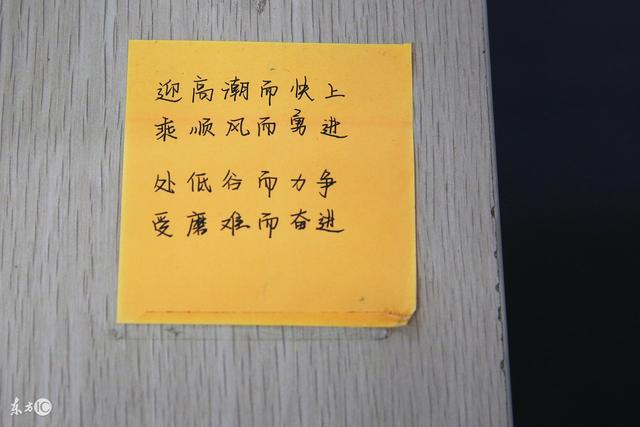 迎高潮而快上
乘顺风而勇进
处低谷而力争
受磨难而奋进
东方IC